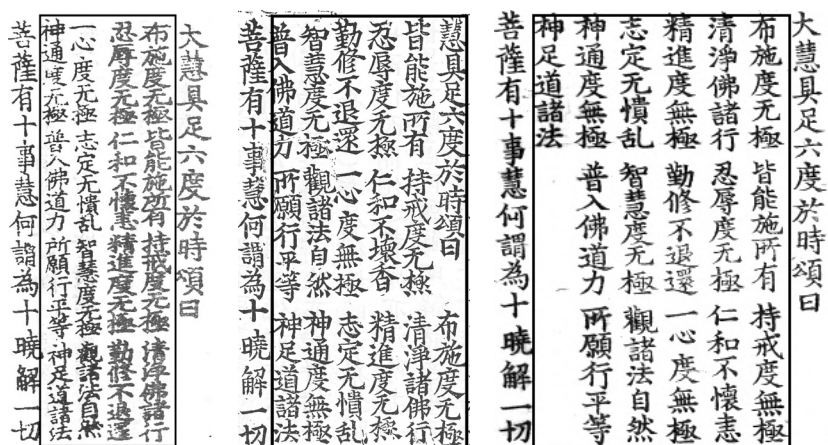 大慧具足六度於時頌曰
布施度无極 皆能施所有 持戒度無極
清淨佛諸行 忍辱度无極 仁和不懷恚
精進度無極 勤修不退還 一心度無極
志定无憒乱 智慧度无極 觀諸法自然
神通度無極 普入佛道力 所願行平等
神足道諸法
菩薩有十事慧何謂為十曉解一切
慧具足六度於時頌曰 布施度无極
皆能施所有 持戒度无極 清淨諸佛行
忍辱度无極 仁和不壞香 精進度无極
勤修不退還 一心度無極 志定无憒乱
智慧度无極 觀諸法自然 神通度無極
普入佛道力 所願行平等 神足道諸法
菩薩有十事慧何謂為十曉解一切
大慧具足六度於時頌曰
布施度无極 皆能施所有 持戒度无極 清淨佛諸行
忍辱度无極 仁和不懷恚 精進度无極 勤修不退還
一心度无極 志定无憒乱 智慧度无極 觀諸法自然
神通度无極 普入佛道力 所願行平等 神足道諸法
菩薩有十事慧何謂為十曉解一切